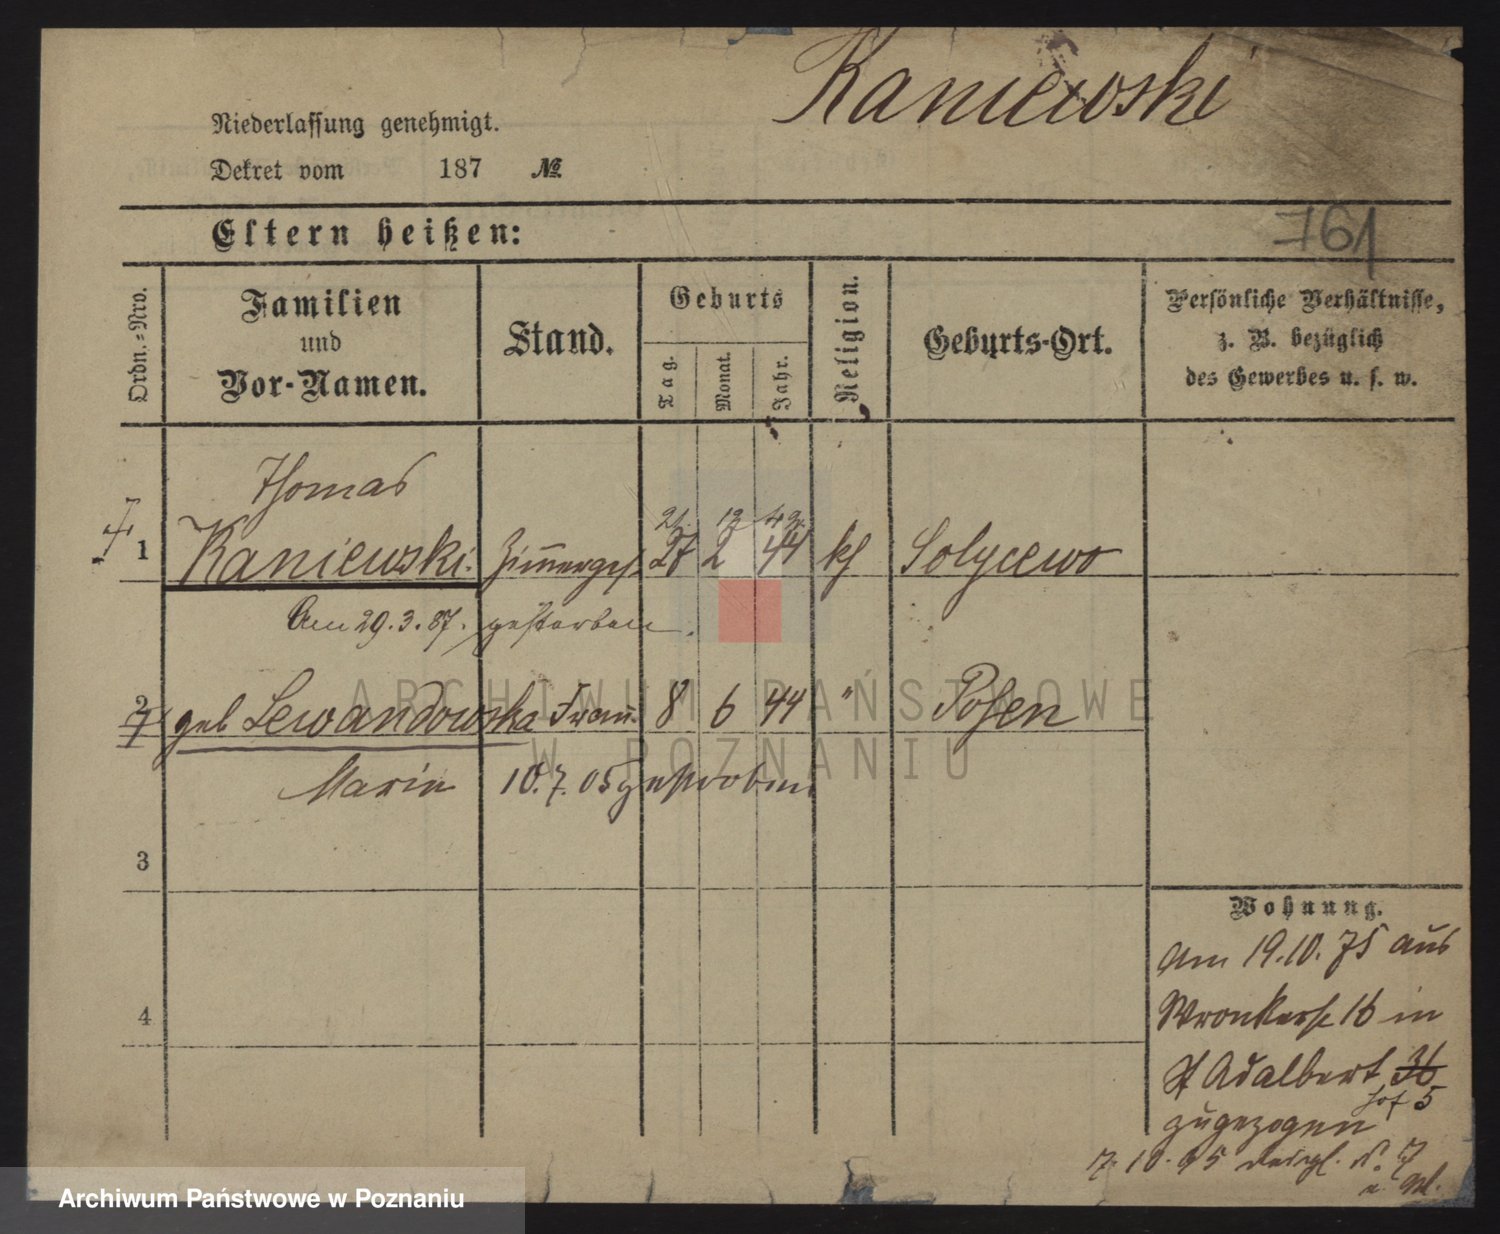 Kaniewski
Niederlassung genehmigt.
Dekret vom 187 №
761
Eltern heißen:
Ordn.=Nro.
Familien
und
Vor-Namen.
Stand.
Geburts
Tag.
Monat.
Jahr.
Religion.
Geburts-Ort.
Persönliche Verhältnisse,
z. B. bezüglich
des Gewerbes u. s. w.
Thomas
21. 12 42
1 Kaniewski. Zimmerges. 27 2 44 kh
Am 29.3.87. gestorben.
2 geb Lewandowska Frau. 8 6 44 " Posen
Marie 10.7.05 gestorben
3
4
Wohnung.
Am 19.10.75 aus
Wronkerstr 16 in
St Adalbert 36
Hof 5
zugezogen
7.10.95 desgl. 7
ARCHIWUM PAŃSTWOWE
W POZNANIU
Archiwum Państwowe w Poznaniu